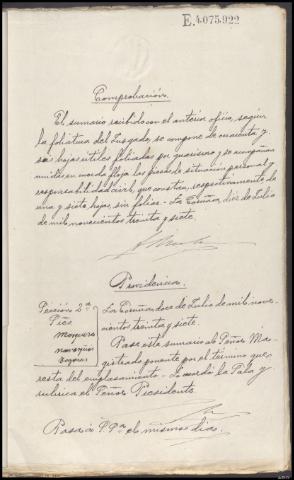 E.4.075.922
Comprobación.
El sumario recibido con el anterior oficio, según
la foliatura del Juzgado, se compone de cuarenta y
seis hojas utiles foliadas por guarismo y se acompañan
unidas en modo flojo las piezas de situacion personal y
responsabilidad civil, que constan, respectivamente de
una y siete hojas, sin folios. La Coruña, diez de Julio
de mil novecientos treinta y siete.
Providencia.
Sección 2ª
La Coruña doce de Julio de mil nove-
cientos treinta y siete.
Pase este sumario al Señor Ma-
gistrado ponente por el término que
resta del emplazamiento. Lo acordó la Sala y
rubrica el Señor Presidente.
Pasa á el mismo dia.